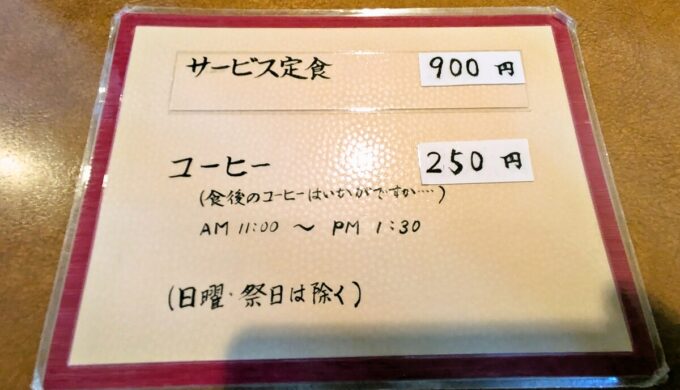 サービス定食 900 円
コーヒー 250 円
(食後のコーヒーはいかがですか‥‥)
AM 11:00 〜 PM 1:30
(日曜・祭日は除く)